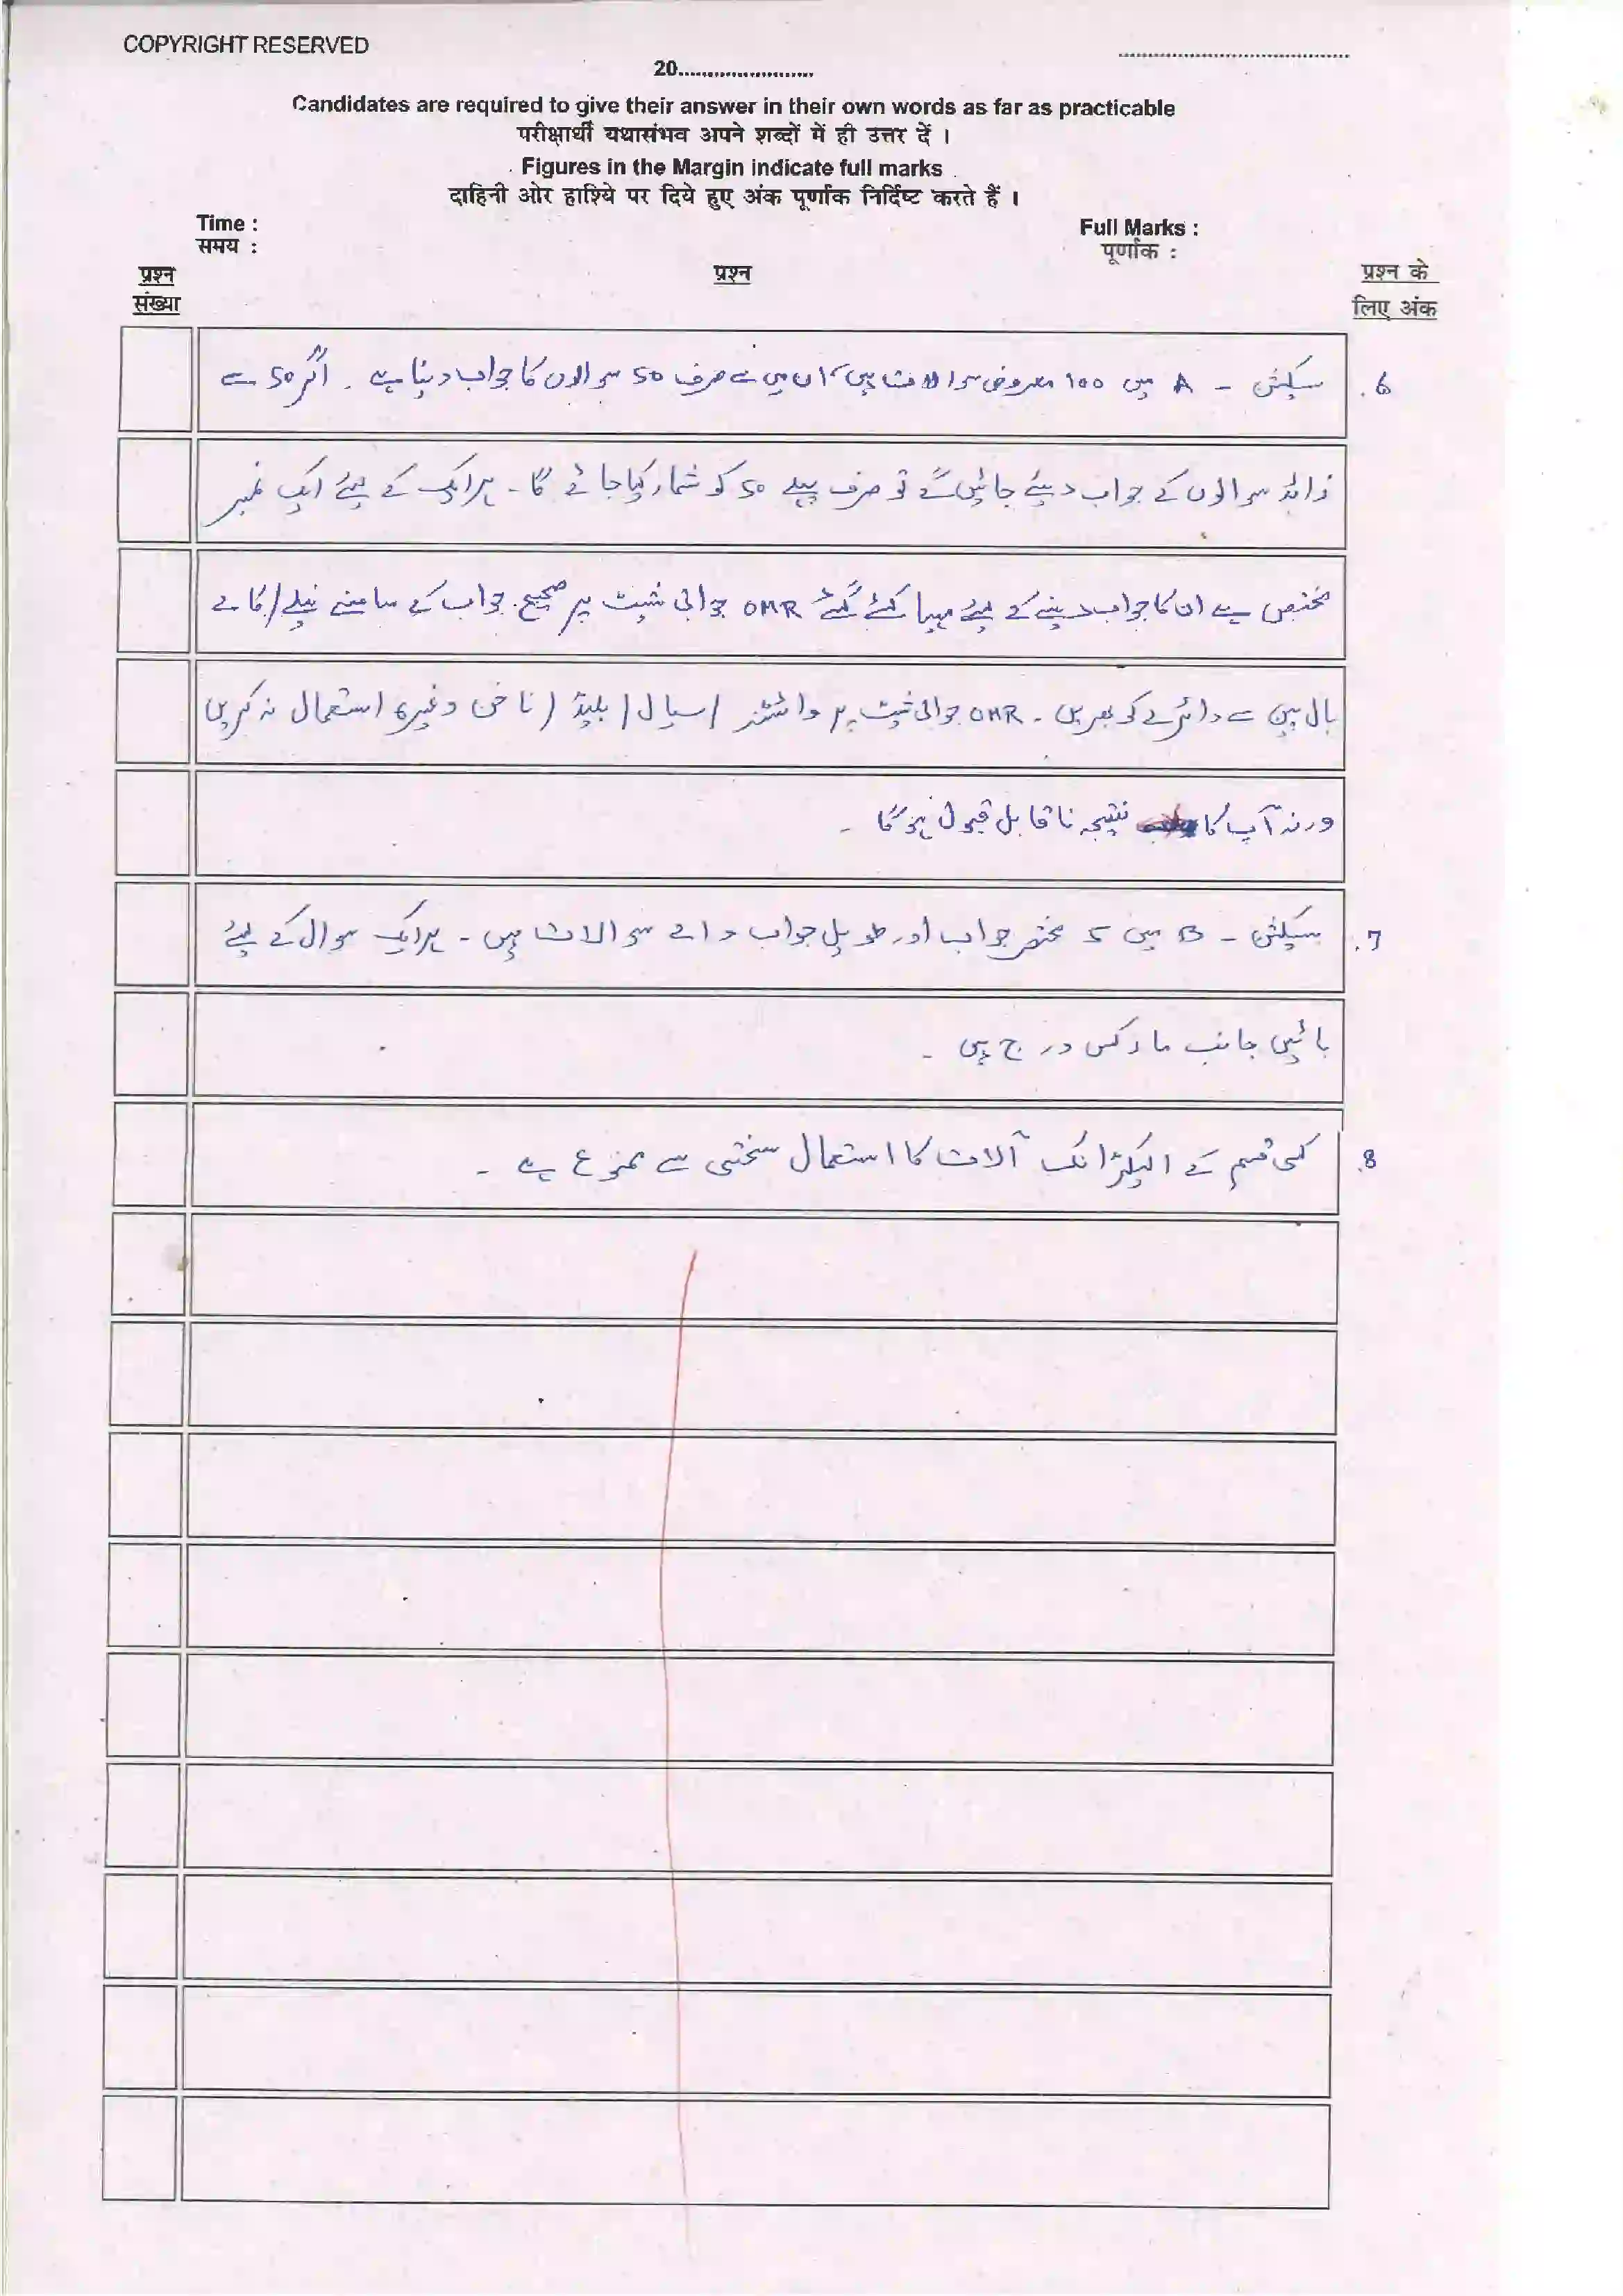 COPYRIGHT RESERVED
20........................
Candidates are required to give their answer in their own words as far as practicable
परीक्षार्थी यथासंभव अपने शब्दों में ही उत्तर दें ।
Figures in the Margin indicate full marks
दाहिनी ओर हाशिये पर दिये हुए अंक पूर्णांक निर्दिष्ट करते हैं ।
Time : Full Marks :
समय : पूर्णांक :
प्रश्न संख्या प्रश्न प्रश्न के लिए अंक
6. سیکشن - A میں 100 معروضی سوالات ہیں، ان میں سے صرف 50 سوالوں کا جواب دینا ہے ۔ اگر 50 سے
زائد سوالوں کے جواب دیئے جائیں گے تو صرف پہلے 50 کو شمار کیا جائے گا ۔ ہر ایک کے لیئے ایک نمبر
مختص ہے ان کا جواب دینے کے لیئے مہیا کئے گئے OMR جوابی شیٹ پر صحیح جواب کے سامنے نیلے / کالے
بال پین سے دائرے کو بھریں ۔ OMR جوابی شیٹ پر وائٹنر / سیال / بلیڈ / ناخن وغیرہ استعمال نہ کریں
ورنہ آپ کا نتیجہ ناقابل قبول ہوگا ۔
7. سیکشن - B میں 5 مختصر جواب اور طویل جواب والے سوالات ہیں ۔ ہر ایک سوال کے لیئے
بائیں جانب مارکس درج ہیں ۔
8. کسی قسم کے الیکٹرانک آلات کا استعمال سختی سے ممنوع ہے ۔